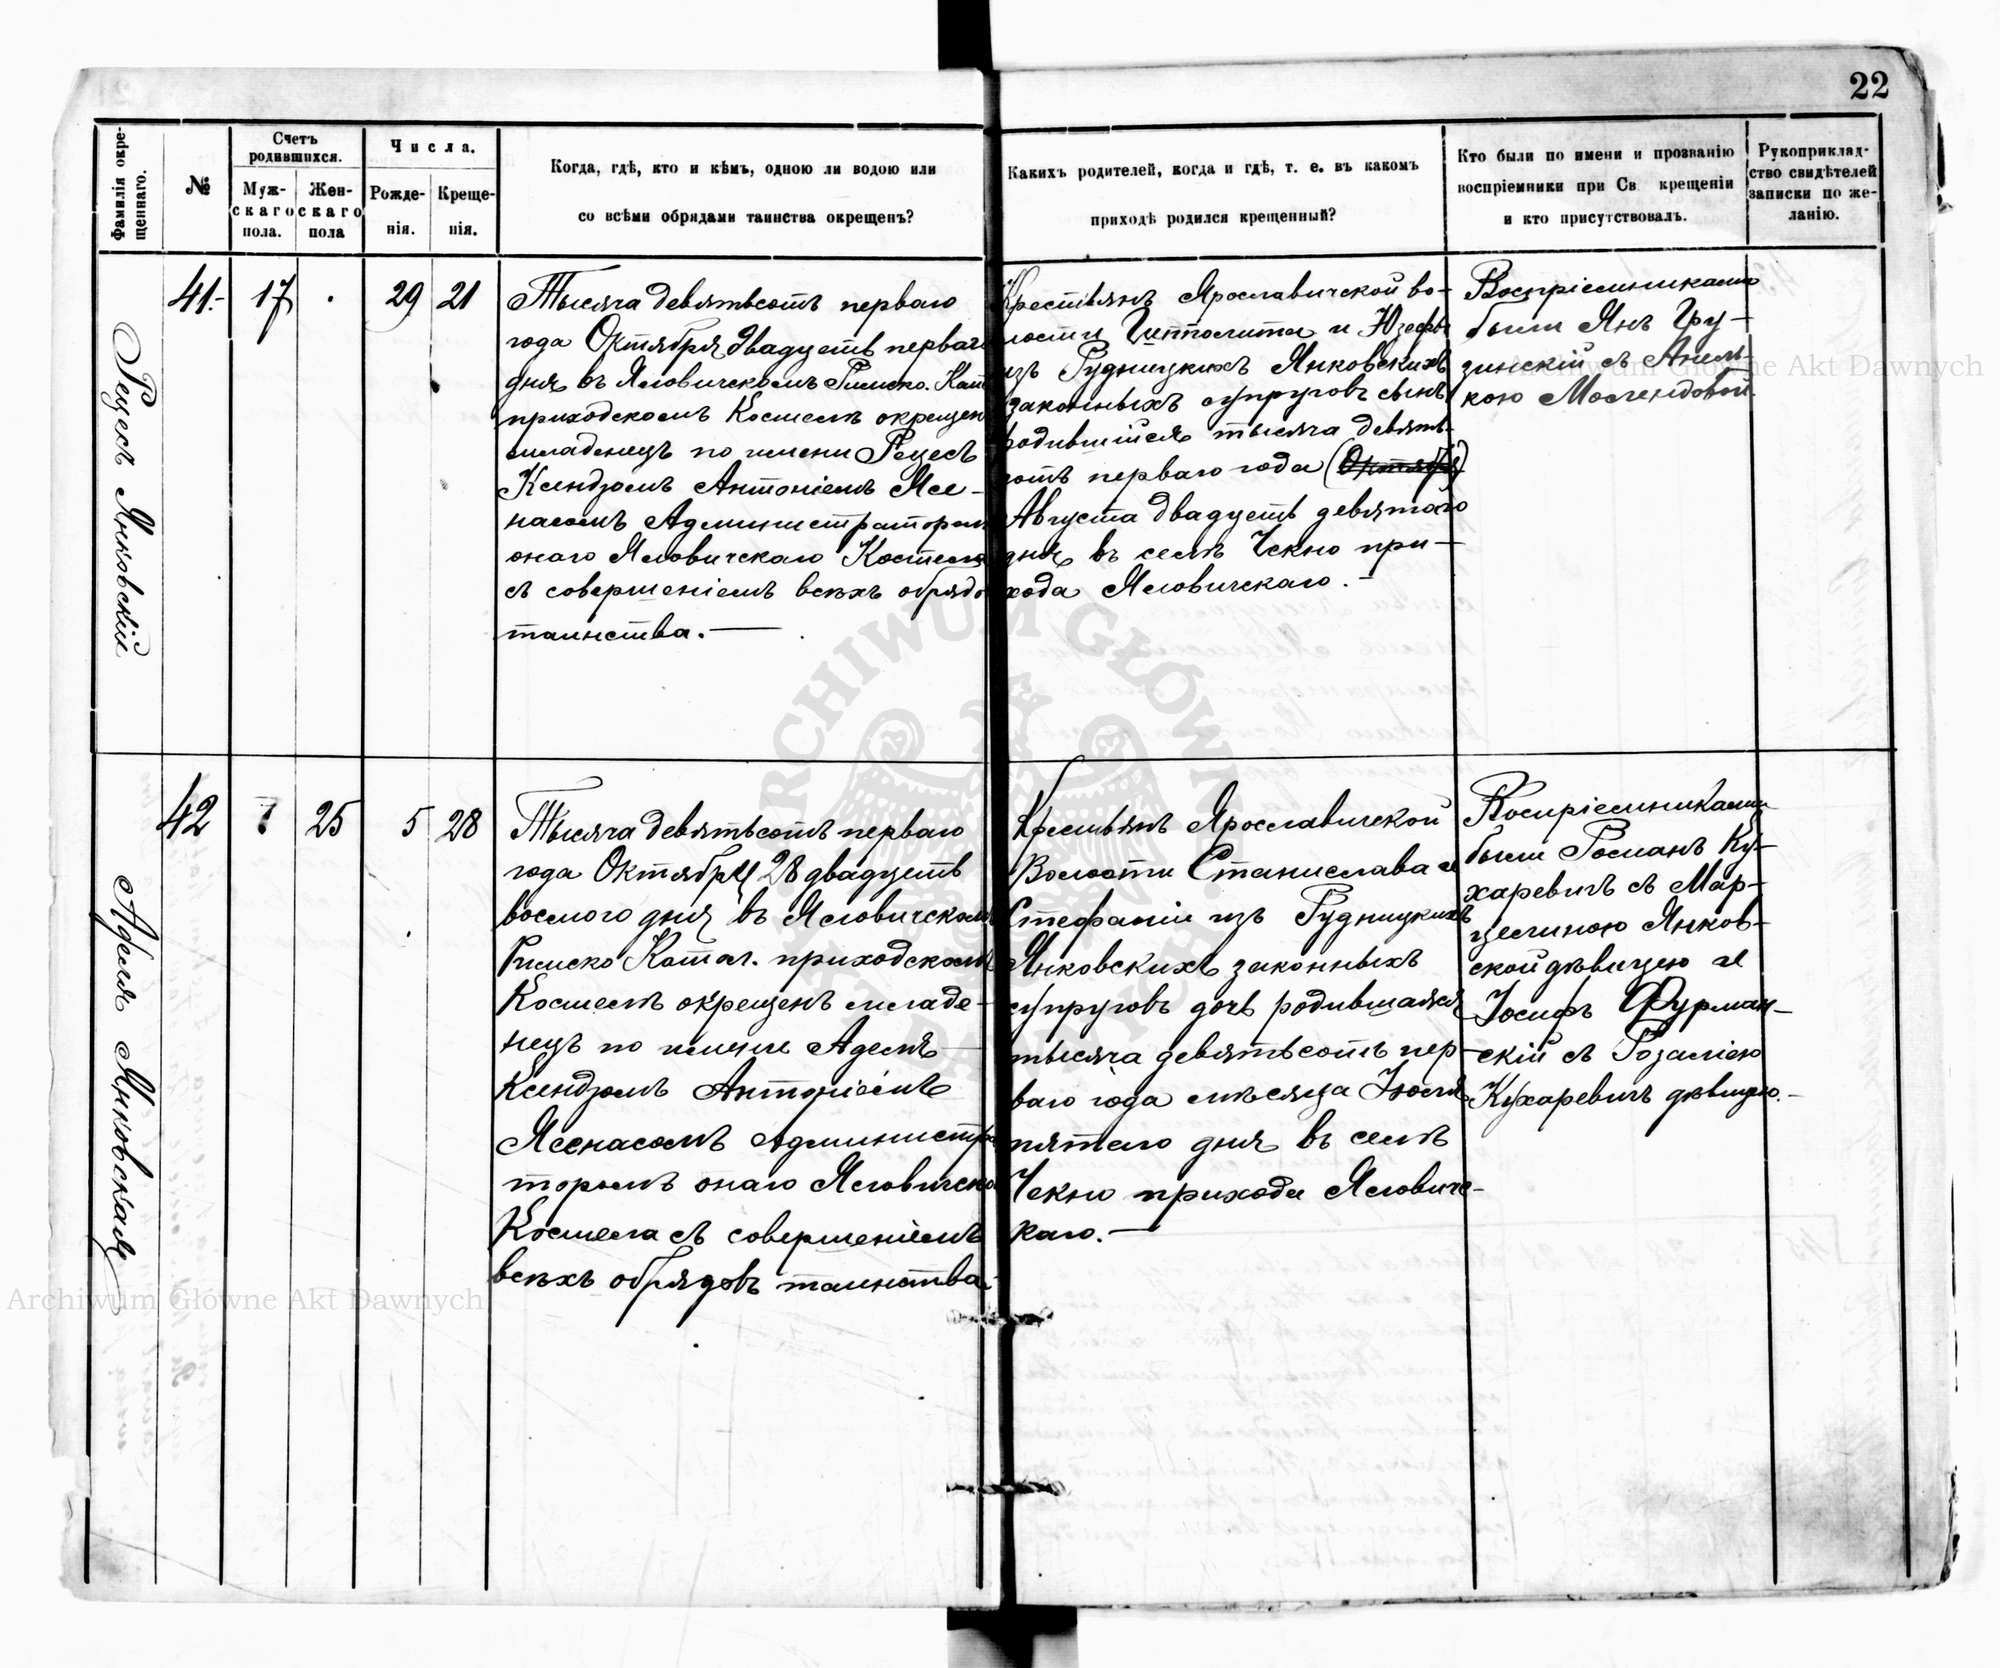 22
Фамилія окре-
щеннаго.
№
Счетъ
родившихся.
Муж-
скаго
пола.
Жен-
скаго
пола
Числа.
Рожде-
нія.
Креще-
нія.
Когда, гдѣ, кто и кѣмъ, одною ли водою или
со всѣми обрядами таинства окрещенъ?
Какихъ родителей, когда и гдѣ, т. е. въ какомъ
приходѣ родился крещенный?
Кто были по имени и прозванію
воспріемники при Св крещеніи
и кто присутствовалъ.
Рукоприклад-
ство свидѣтелей
записки по же-
ланію.
Янковскій
41.-
17
29
21
Тысяча девятьсотъ перваго
года Октября двадцать перваго
дня въ Яловичскомъ Римско. Кат
приходскомъ Костелѣ окрещен
младенецъ по имени
Ксендзомъ Антоніемъ Ясе-
насомъ Администраторомъ
онаго Яловичскаго Костела
съ совершеніемъ всѣхъ обрядо
таинства.—
Крестьянъ Ярославичской во-
лости Ипполита и Юзефы
изъ Рудницкихъ Янковскихъ
законныхъ супруговъ сынъ
родившійся тысяча девять-
сотъ перваго года (Октября)
Августа двадцать девятого
дня въ селѣ Чекно при-
хода Яловичскаго.-
Воспріемниками
были Янъ Гру-
зинскій съ Анель-
кою
Аделя Янковская
42
25
5
28
Тысяча девятьсотъ перваго
года Октября 28 двадцать
восмого дня въ Яловичскомъ
Римско Катол. приходскомъ
Костелѣ окрещенъ младе-
нецъ по имени Аделя
Ксендзомъ Антоніемъ
Ясенасомъ Администра
торомъ онаго Яловичско
Костела съ совершеніемъ
всѣхъ обрядовъ таинства.
Крестьянъ Ярославичской
Волости Станислава и
Стефаніи изъ Рудницкихъ
Янковскихъ законныхъ
супруговъ дочь родившаяся
тысяча девятьсотъ пер-
ваго года мѣсяца Іюля
пятаго дня въ селѣ
Чекно прихода Яловичс-
каго.—
Воспріемниками
были Романъ Ку-
харевичъ съ Мар-
целиною Янков-
ской дѣвицею и
Іосифъ Фурман-
скій съ Розаліею
Кухаревичъ дѣвицею.-
ARCHIWUM GŁÓWNE
Archiwum Główne Akt Dawnych
Archiwum Główne Akt Dawnych